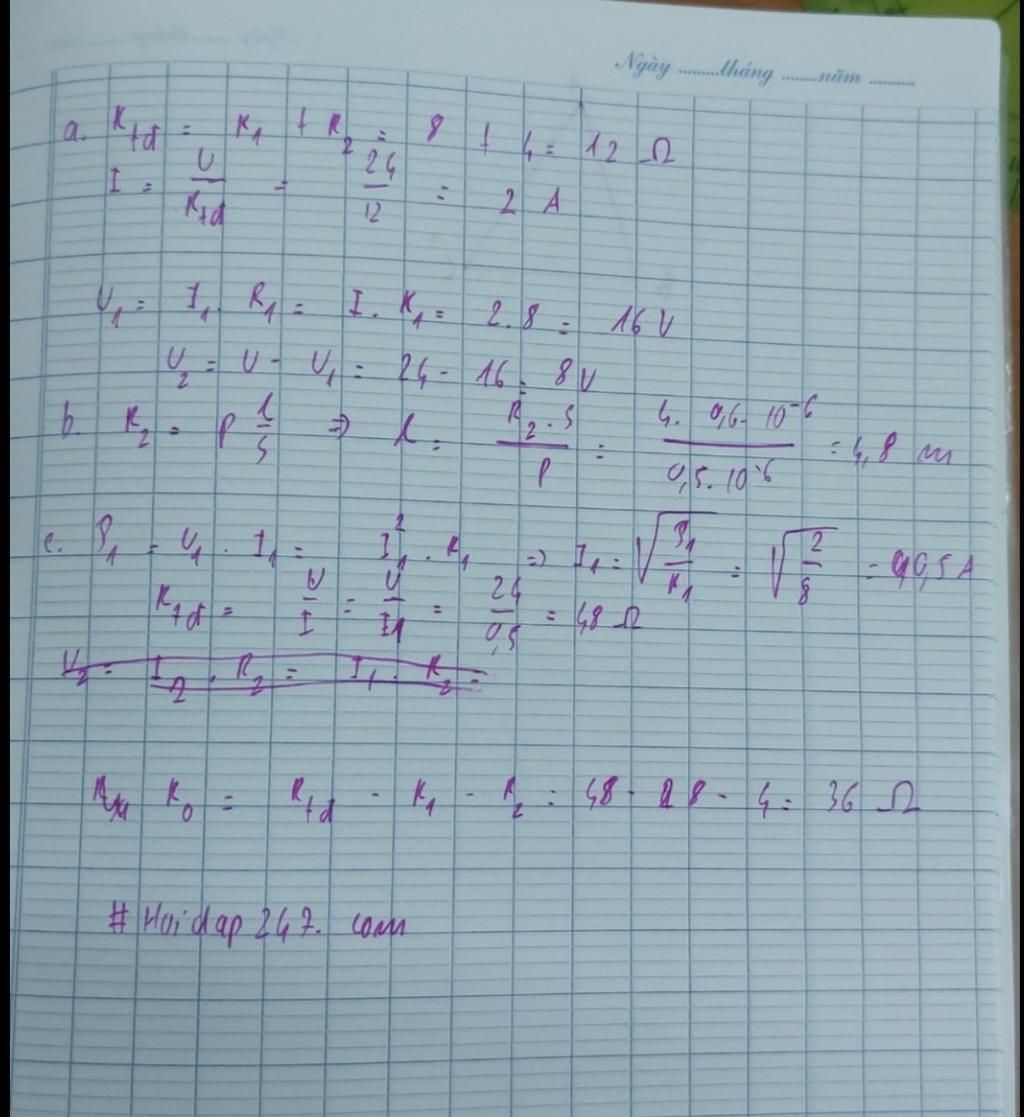 Ngày ........tháng .......năm .........
a. Rtđ = R1 + R2 = 8 + 4 = 12 Ω
I = U/Rtđ = 24/12 = 2 A
U1 = I1 . R1 = I . R1 = 2.8 = 16 V
U2 = U - U1 = 24 - 16 = 8V
b. R2 = ρ l/S => l = R2 . S/ρ = 4. 0,6. 10^-6/0,5. 10^-6 = 4,8 m
c. P1 = U1 . I1 = I1² . R1 => I1 = √(P1/R1) = √(2/8) = 0,5 A
Rtđ = U/I = U/I1 = 24/0,5 = 48 Ω
U2 = I2 . R2 = I1 . R2 =
R0 = Rtđ - R1 - R2 = 48 - 8 - 4 = 36 Ω
# Hoidap247. com